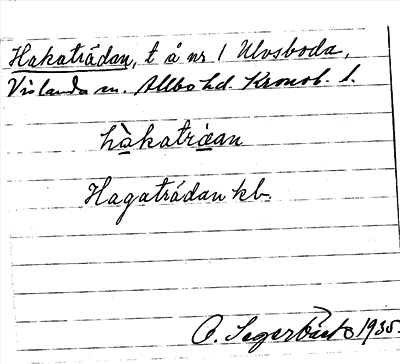 Hakaträdan, t å nr 1 Ulvsboda,
Vislanda sn. Allbo hd. Kronob. l.
hakaträan
Hagaträdan kb.
O. Segerbäck 1935.